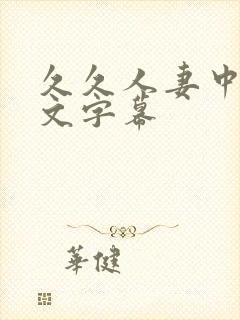 久久人妻中
文字幕
華健